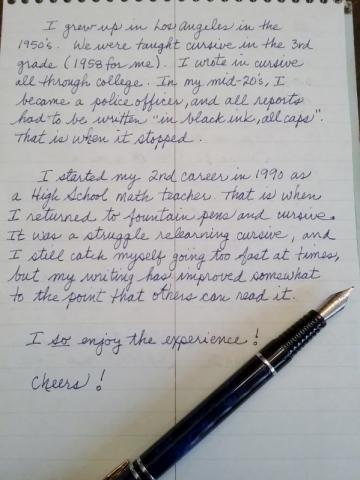 I grew up in Los Angeles in the
1950's. We were taught cursive in the 3rd
grade (1958 for me). I wrote in cursive
all through college. In my mid-20's, I
became a police officer, and all reports
had to be written "in black ink, all caps".
That is when it stopped.
I started my 2nd career in 1990 as
a High School Math teacher. That is when
I returned to fountain pens and cursive.
It was a struggle relearning cursive, and
I still catch myself going too fast at times,
but my writing has improved somewhat
to the point that others can read it.
I so enjoy the experience!
Cheers!